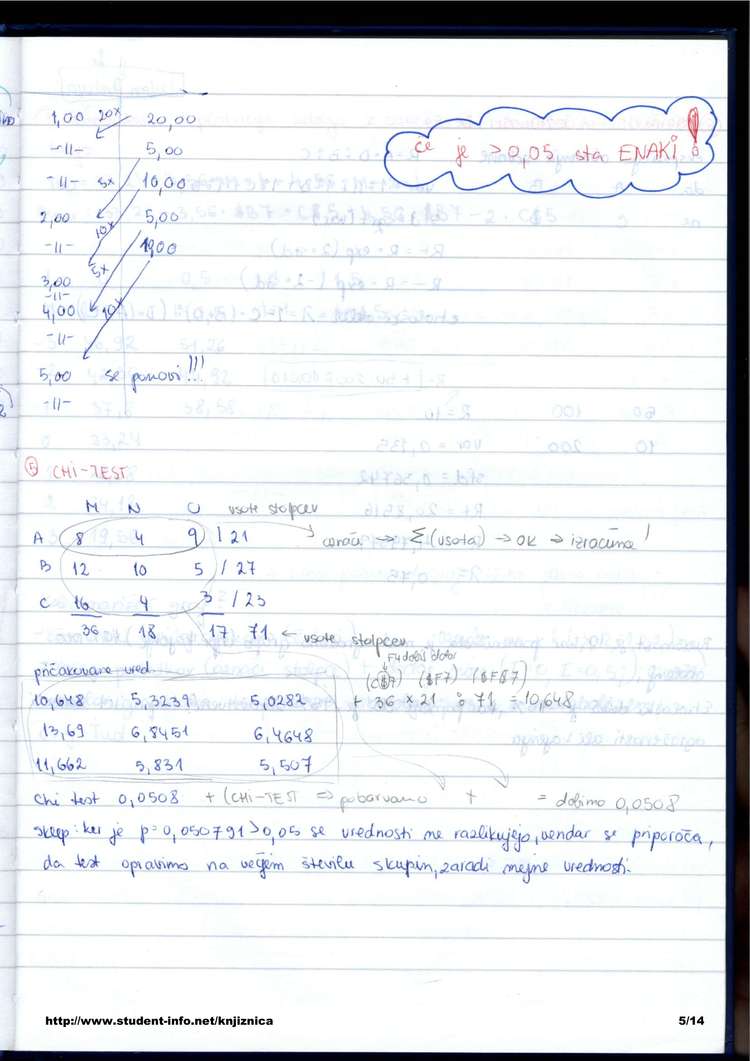 1,00 20x 20,00
-11- 5,00
-11- 5x 10,00
2,00 5,00
-11- 10x 10,00
3,00 5x
-11-
4,00 10x
-11-
5,00 se ponovi!!!
-11-
če je >0,05 sta ENAKI!
5 CHI-TEST
M N O vsote stolpcev
A 8 4 9 / 21 označi → Σ(vsota) → OK → izračuna!
B 12 10 5 / 27
C 16 4 3 / 23
36 18 17 71 ← vsote stolpcev
pričakovane vred.
F4
(C$7) ($F7) ($F$7)
10,648 5,3239 5,0282 + 36 x 21 : 71 = 10,648
13,69 6,8451 6,4648
11,662 5,831 5,507
Chi test 0,0508 + (CHI-TEST ⇒ pobarvamo + = dobimo 0,0508
sklep: ker je p=0,050791>0,05 se vrednosti ne razlikujejo, vendar se priporoča,
da test opravimo na večjem številu skupin, zaradi mejne vrednosti.
http://www.student-info.net/knjiznica
5/14